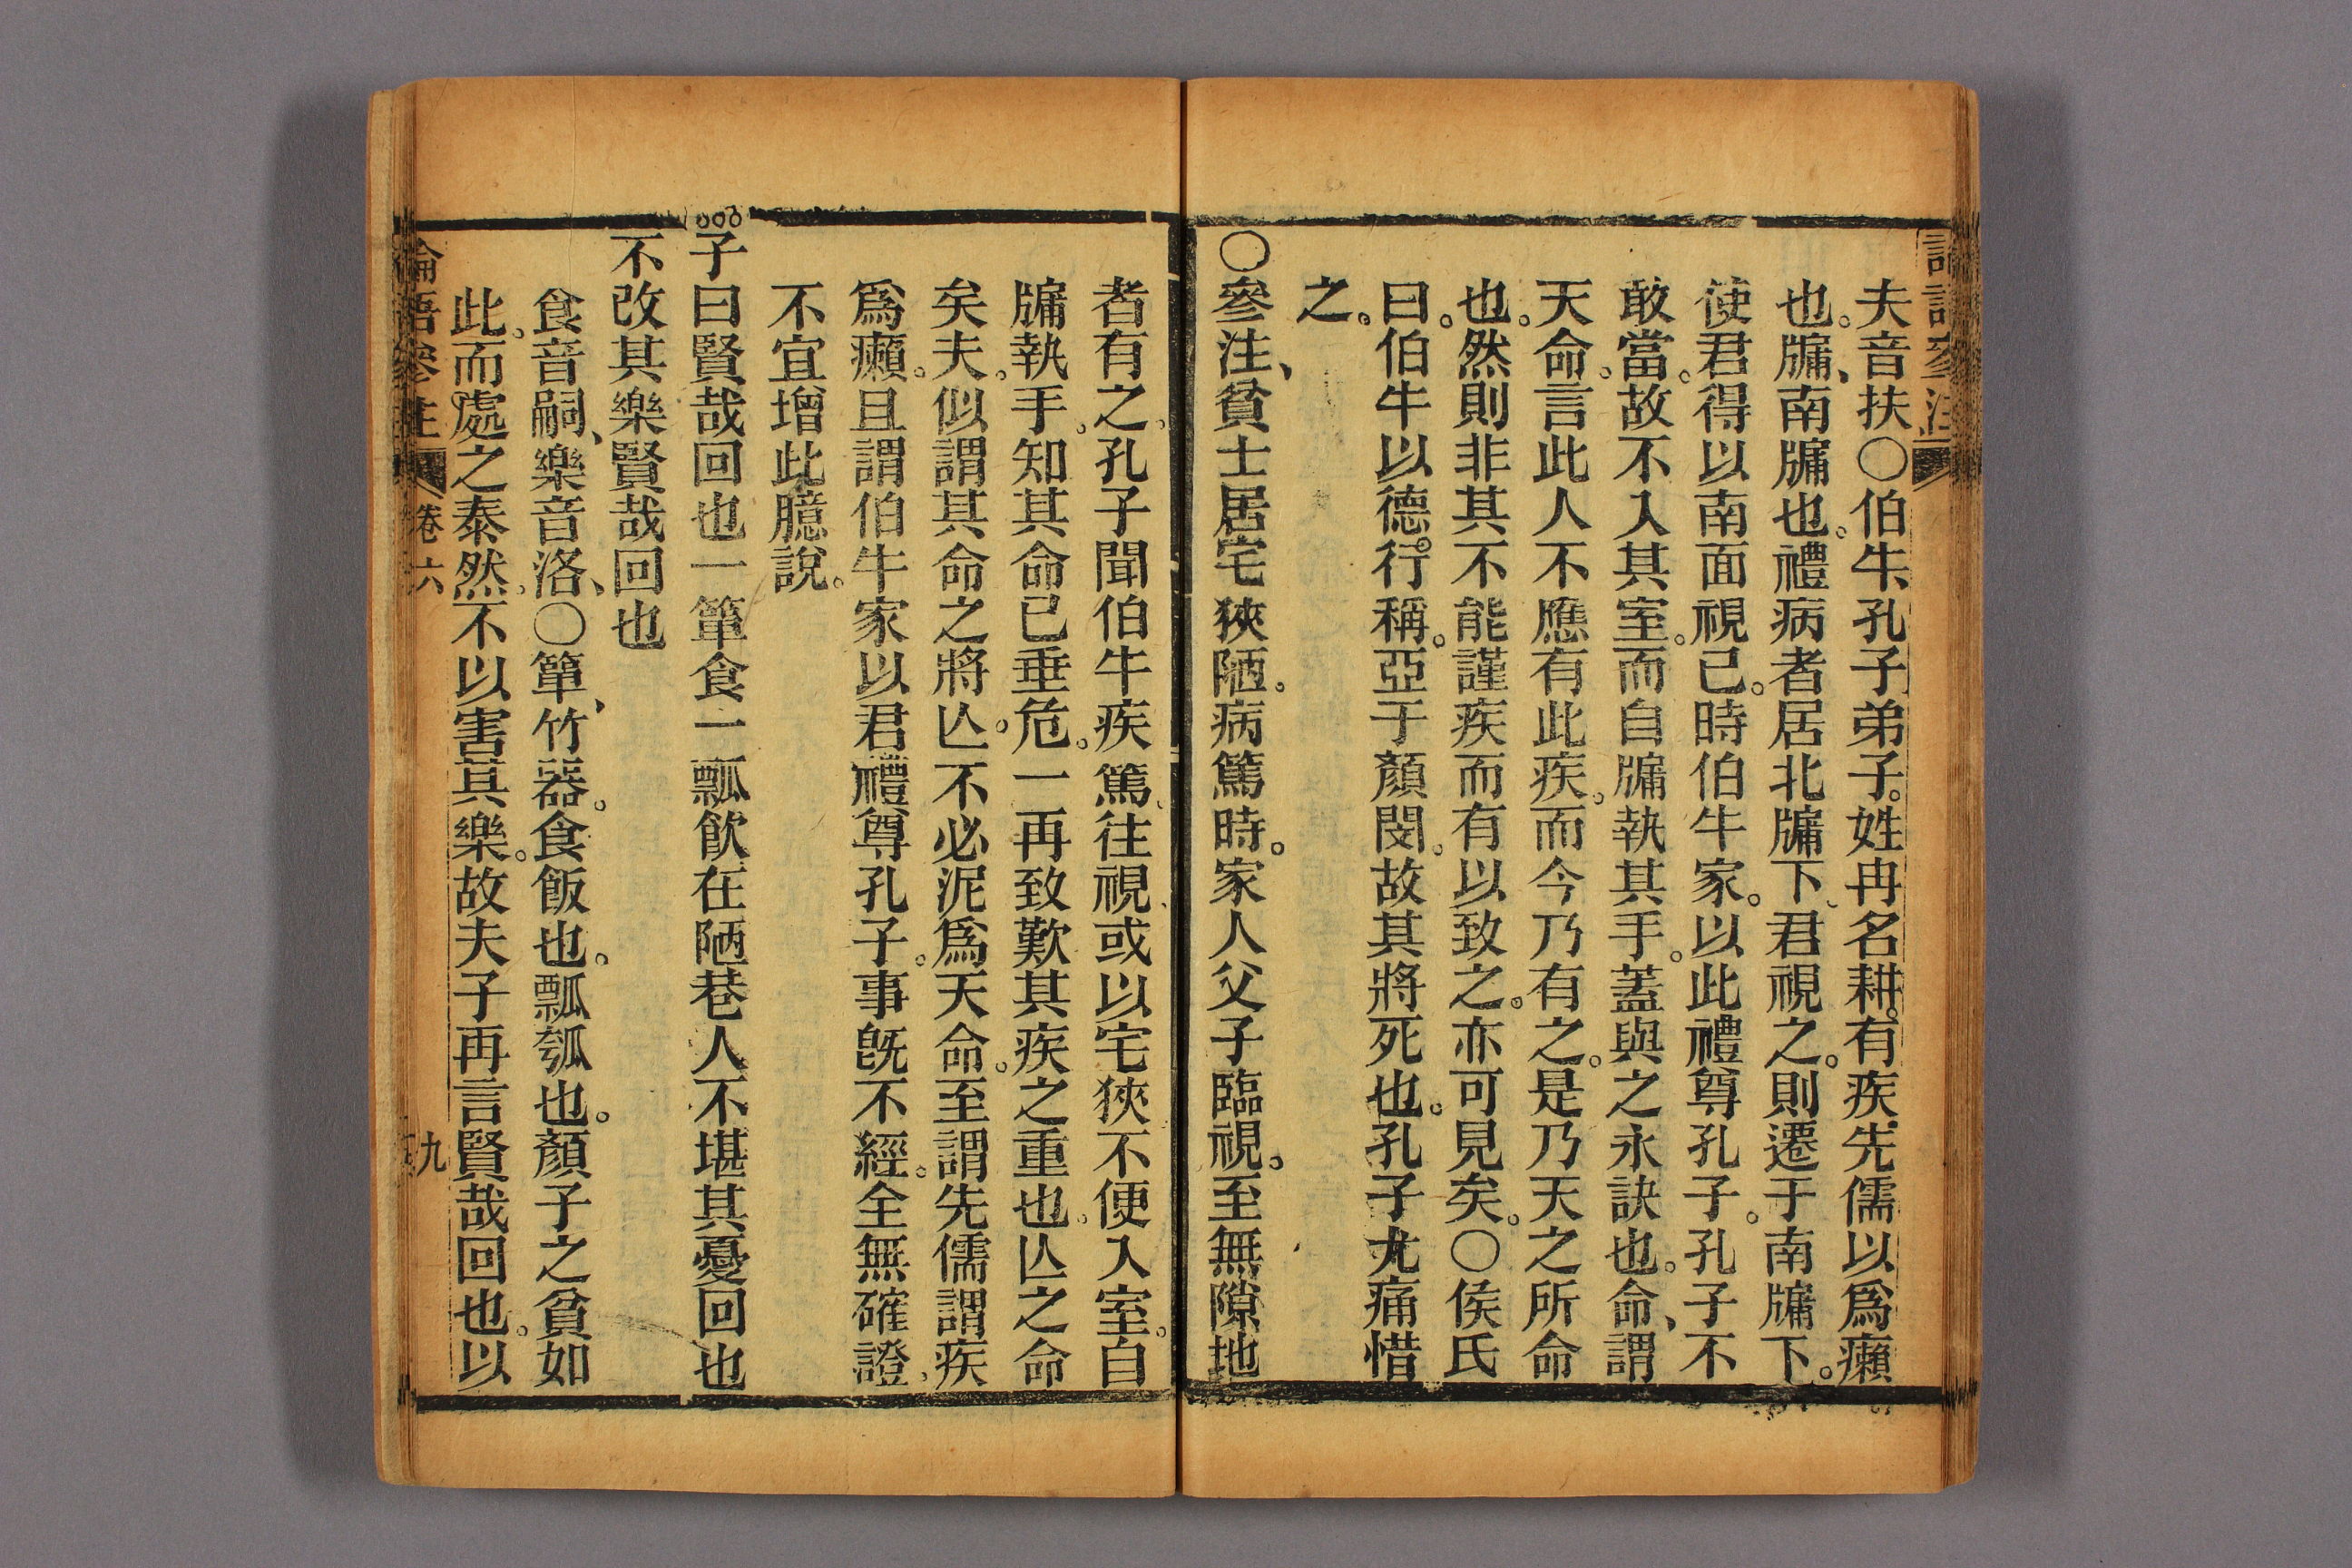 夫音扶○伯牛、孔子弟子。姓冉名耕。有疾、先儒以爲癩
也。牖、南牖也。禮病者居北牖下、君視之。則遷于南牖下。
使君得以南面視己。時伯牛家。以此禮尊孔子。孔子不
敢當。故不入其室。而自牖執其手。蓋與之永訣也。命、謂
天命。言此人不應有此疾。而今乃有之。是乃天之所命
也。然則非其不能謹疾而有以致之。亦可見矣。○侯氏
曰。伯牛以德行稱。亞于顏閔。故其將死也。孔子尢痛惜
之。
○參注、貧士居宅狹陋。病篤時。家人父子臨視。至無隙地
者有之。孔子聞伯牛疾篤、往視、或以宅狹不便入室。自
牖執手。知其命已垂危。一再致歎其疾之重也。亾之命
矣夫。似謂其命之將亾。不必泥爲天命。至謂先儒謂疾
爲癩。且謂伯牛家以君禮尊孔子。事旣不經。全無確證、
不宜增此臆說。
子曰賢哉回也一簞食一瓢飮在陋巷人不堪其憂回也
不改其樂賢哉回也
食音嗣、樂音洛、○簞、竹器。食飯也。瓢瓠也。顏子之貧如
此。而處之泰然。不以害其樂。故夫子再言賢哉回也。以
論語參注 卷六 九